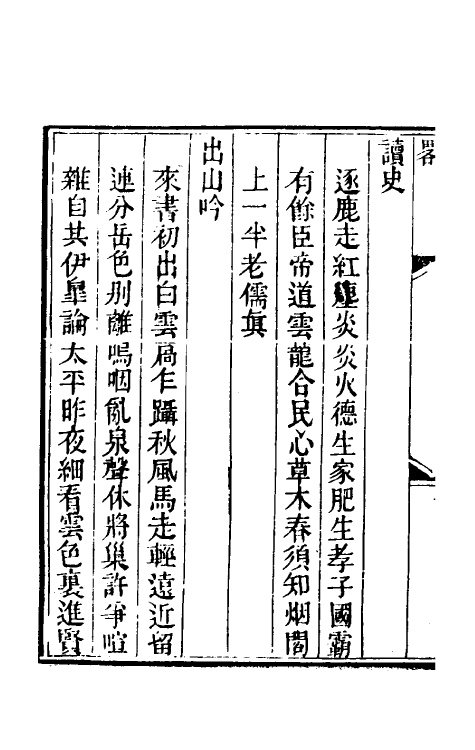 畧
讀史
逐鹿走紅塵炎炎火德生家肥生孝子國霸
有餘臣帝道雲龍合民心草木春須知烟閣
上一半老儒眞
出山吟
來書初出白雲扃乍躡秋風馬走輕遠近留
連分岳色别離嗚咽亂泉聲休將巢許爭喧
雜自共伊臯論太平昨夜細看雲色裏進賢